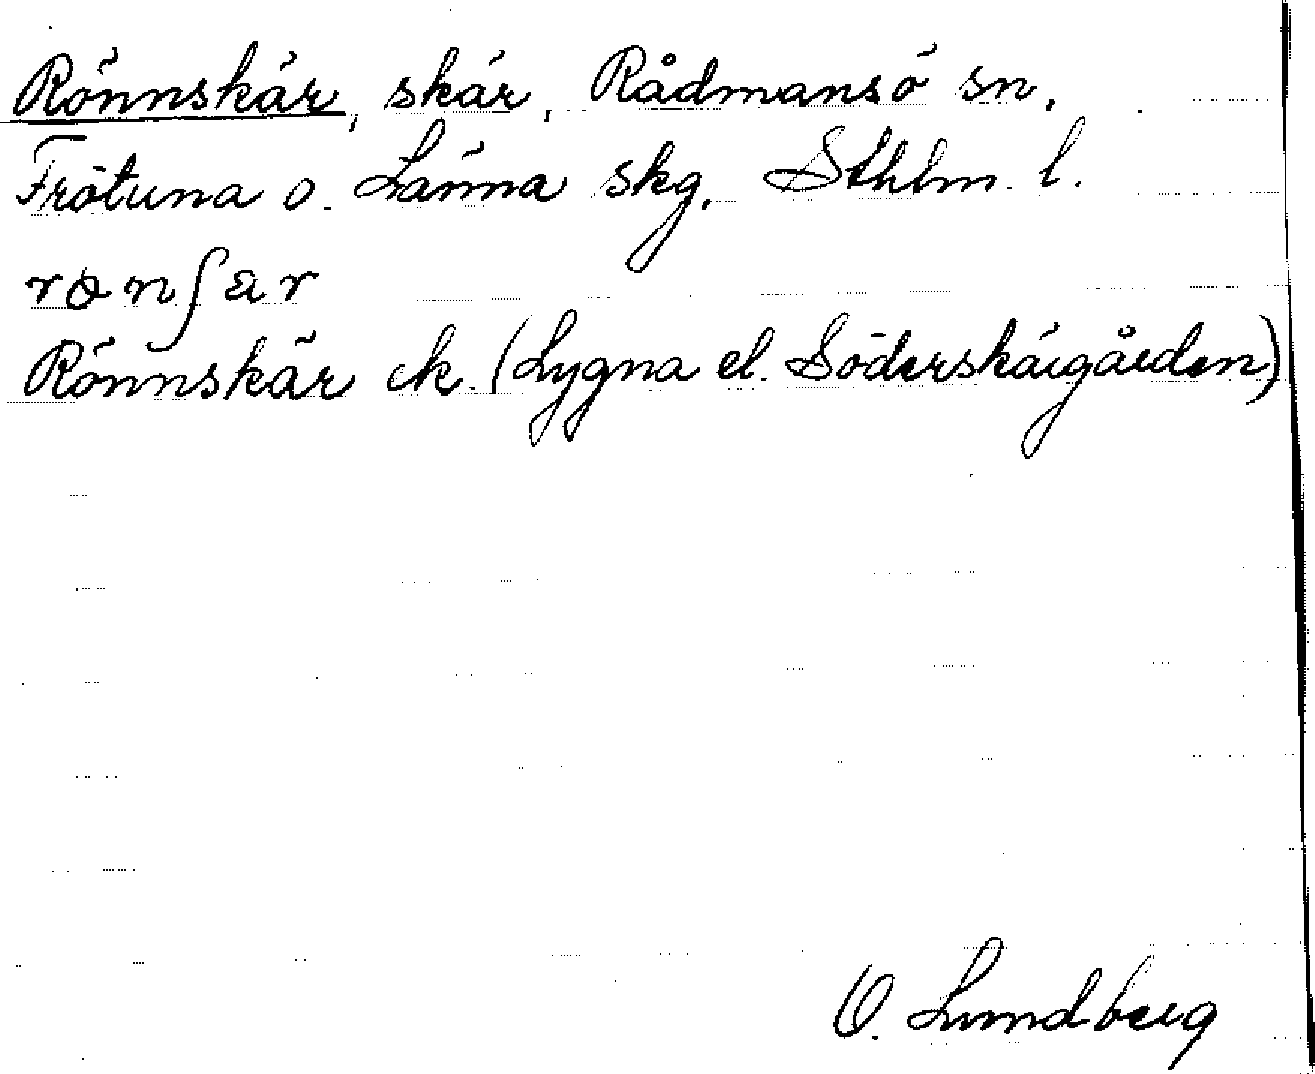 Rönnskär, skär, Rådmansö sn.
Frötuna o. Länna skg. Sthlm. l.
rönʃär
Rönnskär ek. (Lygna el. Söderskärgården)
O. Lundberg